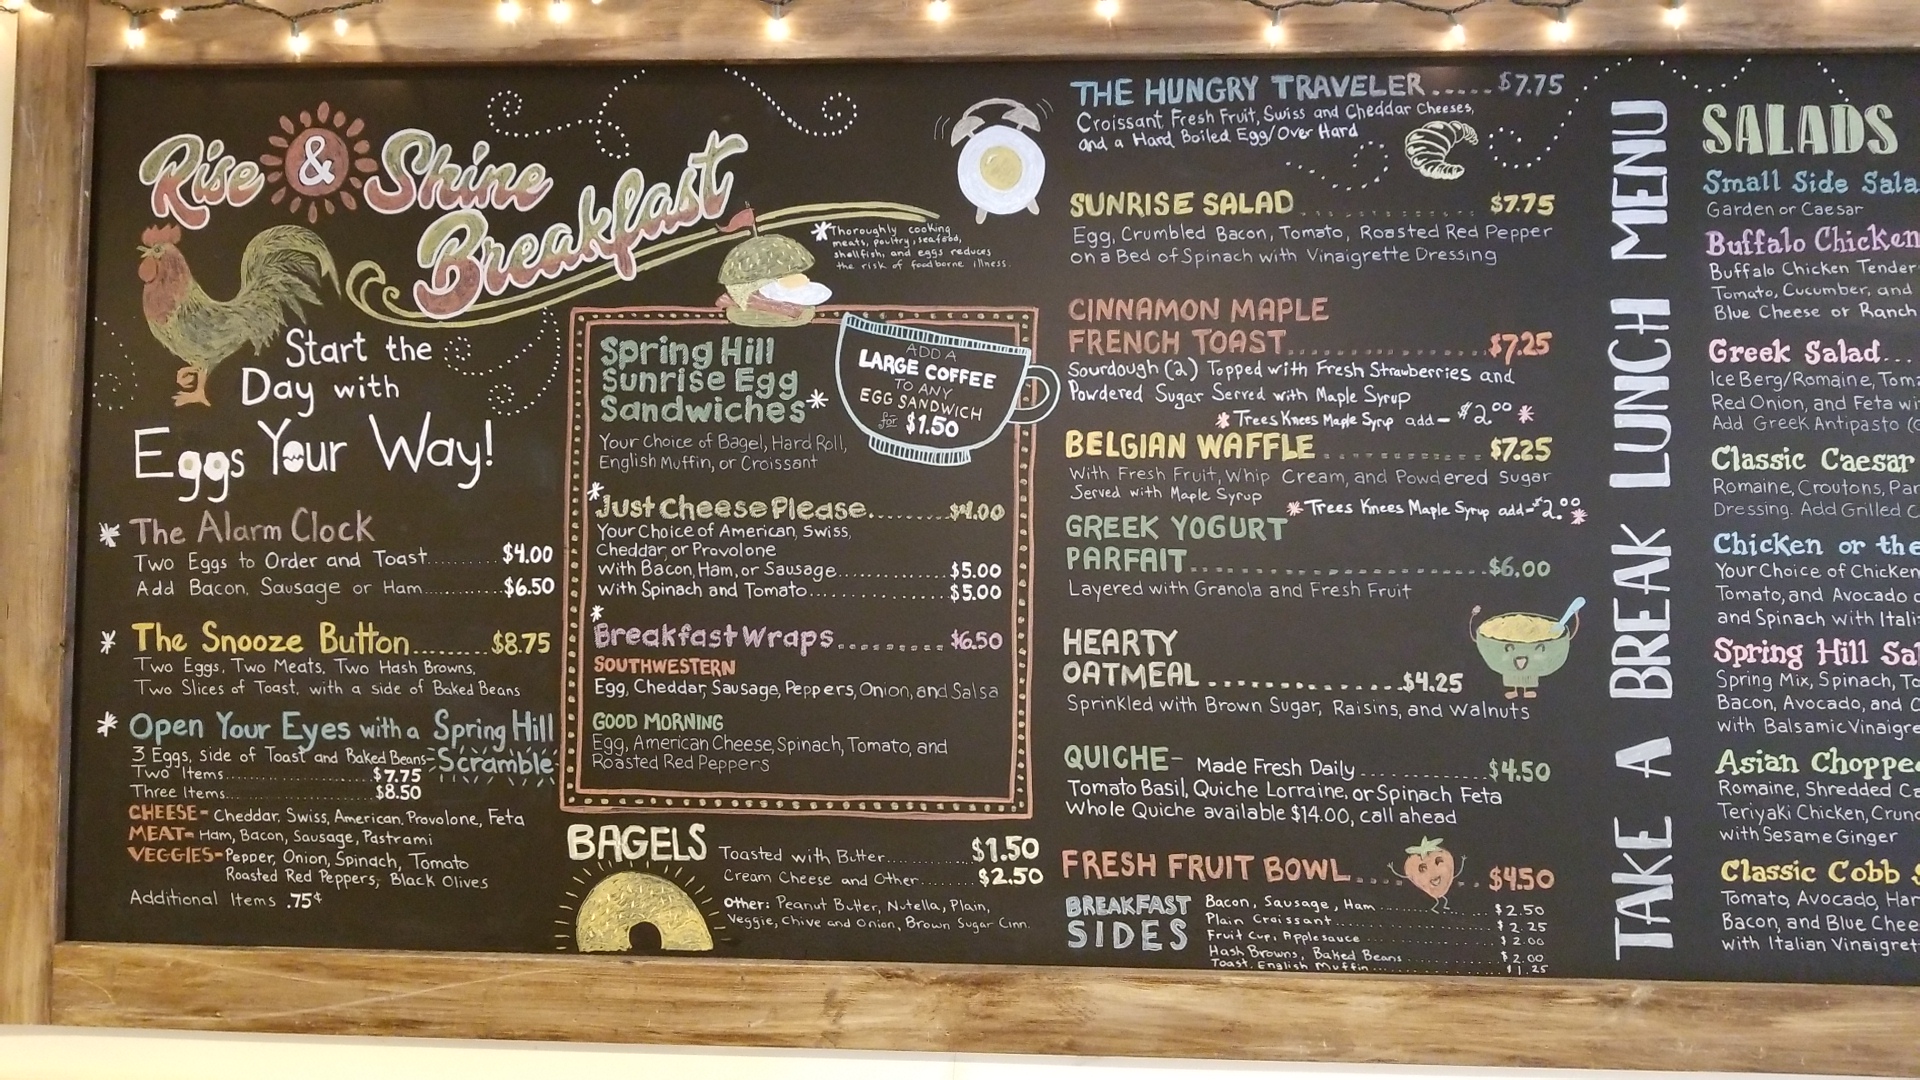 Rise & Shine
Breakfast
*Thoroughly cooking
meats, poultry, seafood,
shellfish, and eggs reduces
the risk of foodborne illness.
Start the
Day with
Eggs Your Way!
* The Alarm Clock
Two Eggs to Order and Toast........ $4.00
Add Bacon, Sausage or Ham.......... $6.50
* The Snooze Button........ $8.75
Two Eggs, Two Meats, Two Hash Browns,
Two Slices of Toast, with a side of Baked Beans
* Open Your Eyes with a Spring Hill
Scramble
3 Eggs, side of Toast and Baked Beans
Two Items.................... $7.75
Three Items.................. $8.50
CHEESE- Cheddar, Swiss, American, Provolone, Feta
MEAT- Ham, Bacon, Sausage, Pastrami
VEGGIES- Pepper, Onion, Spinach, Tomato
Roasted Red Peppers, Black Olives
Additional Items .75¢
Spring Hill
Sunrise Egg
Sandwiches*
Your Choice of Bagel, Hard Roll,
English Muffin, or Croissant
ADD A
LARGE COFFEE
TO ANY
EGG SANDWICH
for $1.50
*Just Cheese Please........ $4.00
Your Choice of American, Swiss,
Cheddar, or Provolone
with Bacon, Ham, or Sausage........ $5.00
with Spinach and Tomato........ $5.00
*Breakfast Wraps........ $6.50
SOUTHWESTERN
Egg, Cheddar, Sausage, Peppers, Onion, and Salsa
GOOD MORNING
Egg, American Cheese, Spinach, Tomato, and
Roasted Red Peppers
BAGELS
Toasted with Butter........ $1.50
Cream Cheese and Other........ $2.50
Other: Peanut Butter, Nutella, Plain,
Veggie, Chive and Onion, Brown Sugar Cinn.
THE HUNGRY TRAVELER..... $7.75
Croissant, Fresh Fruit, Swiss and Cheddar Cheeses,
and a Hard Boiled Egg/Over Hard
SUNRISE SALAD........ $7.75
Egg, Crumbled Bacon, Tomato, Roasted Red Pepper
on a Bed of Spinach with Vinaigrette Dressing
CINNAMON MAPLE
FRENCH TOAST........ $7.25
Sourdough (2) Topped with Fresh Strawberries and
Powdered Sugar Served with Maple Syrup
* Trees Knees Maple Syrup add- $2.00 *
BELGIAN WAFFLE........ $7.25
With Fresh Fruit, Whip Cream, and Powdered Sugar
Served with Maple Syrup
* Trees Knees Maple Syrup add-$2.00 *
GREEK YOGURT
PARFAIT........ $6.00
Layered with Granola and Fresh Fruit
HEARTY
OATMEAL........ $4.25
Sprinkled with Brown Sugar, Raisins, and Walnuts
QUICHE- Made Fresh Daily........ $4.50
Tomato Basil, Quiche Lorraine, or Spinach Feta
Whole Quiche available $14.00, call ahead
FRESH FRUIT BOWL........ $4.50
BREAKFAST
SIDES
Bacon, Sausage, Ham........ $2.50
Plain Croissant........ $2.25
Fruit Cup, Applesauce........ $2.00
Hash Browns, Baked Beans........ $2.00
Toast, English Muffin........ $1.25
TAKE A BREAK LUNCH MENU
SALADS
Small Side Sala
Garden or Caesar
Buffalo Chicken
Buffalo Chicken Tender
Tomato, Cucumber, and
Blue Cheese or Ranch
Greek Salad...
Ice Berg/Romaine, Toma
Red Onion, and Feta wi
Add Greek Antipasto (
Classic Caesar
Romaine, Croutons, Par
Dressing. Add Grilled C
Chicken or the
Your Choice of Chicken
Tomato, and Avocado
and Spinach with Itali
Spring Hill Sal
Spring Mix, Spinach, To
Bacon, Avocado, and C
with Balsamic Vinaigre
Asian Chopped
Romaine, Shredded Ca
Teriyaki Chicken, Crunc
with Sesame Ginger
Classic Cobb S
Tomato, Avocado, Har
Bacon, and Blue Chee
with Italian Vinaigret